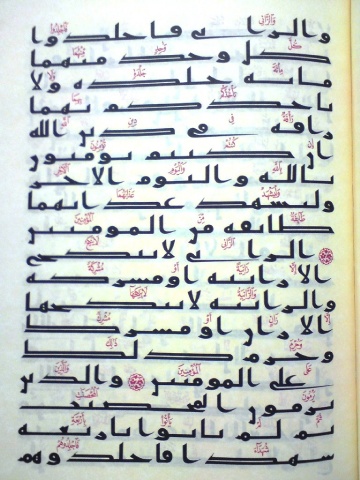 والزاني فاجلدوا
كل وحد منهما
مائة جلدة ولا
تاخذكم بهما
رافة في دين الله
ان كنتم تومنون
بالله واليوم الاخر
وليشهد عذابهما
طائفة من المومنين
الزاني لا ينكح
الا زانية او مشركة
والزانية لا ينكحها
الا زان او مشرك
وحرم ذلك
على المومنين والذين
يرمون المحصنت
ثم لم ياتوا باربعة
شهدا فاجلدوهم